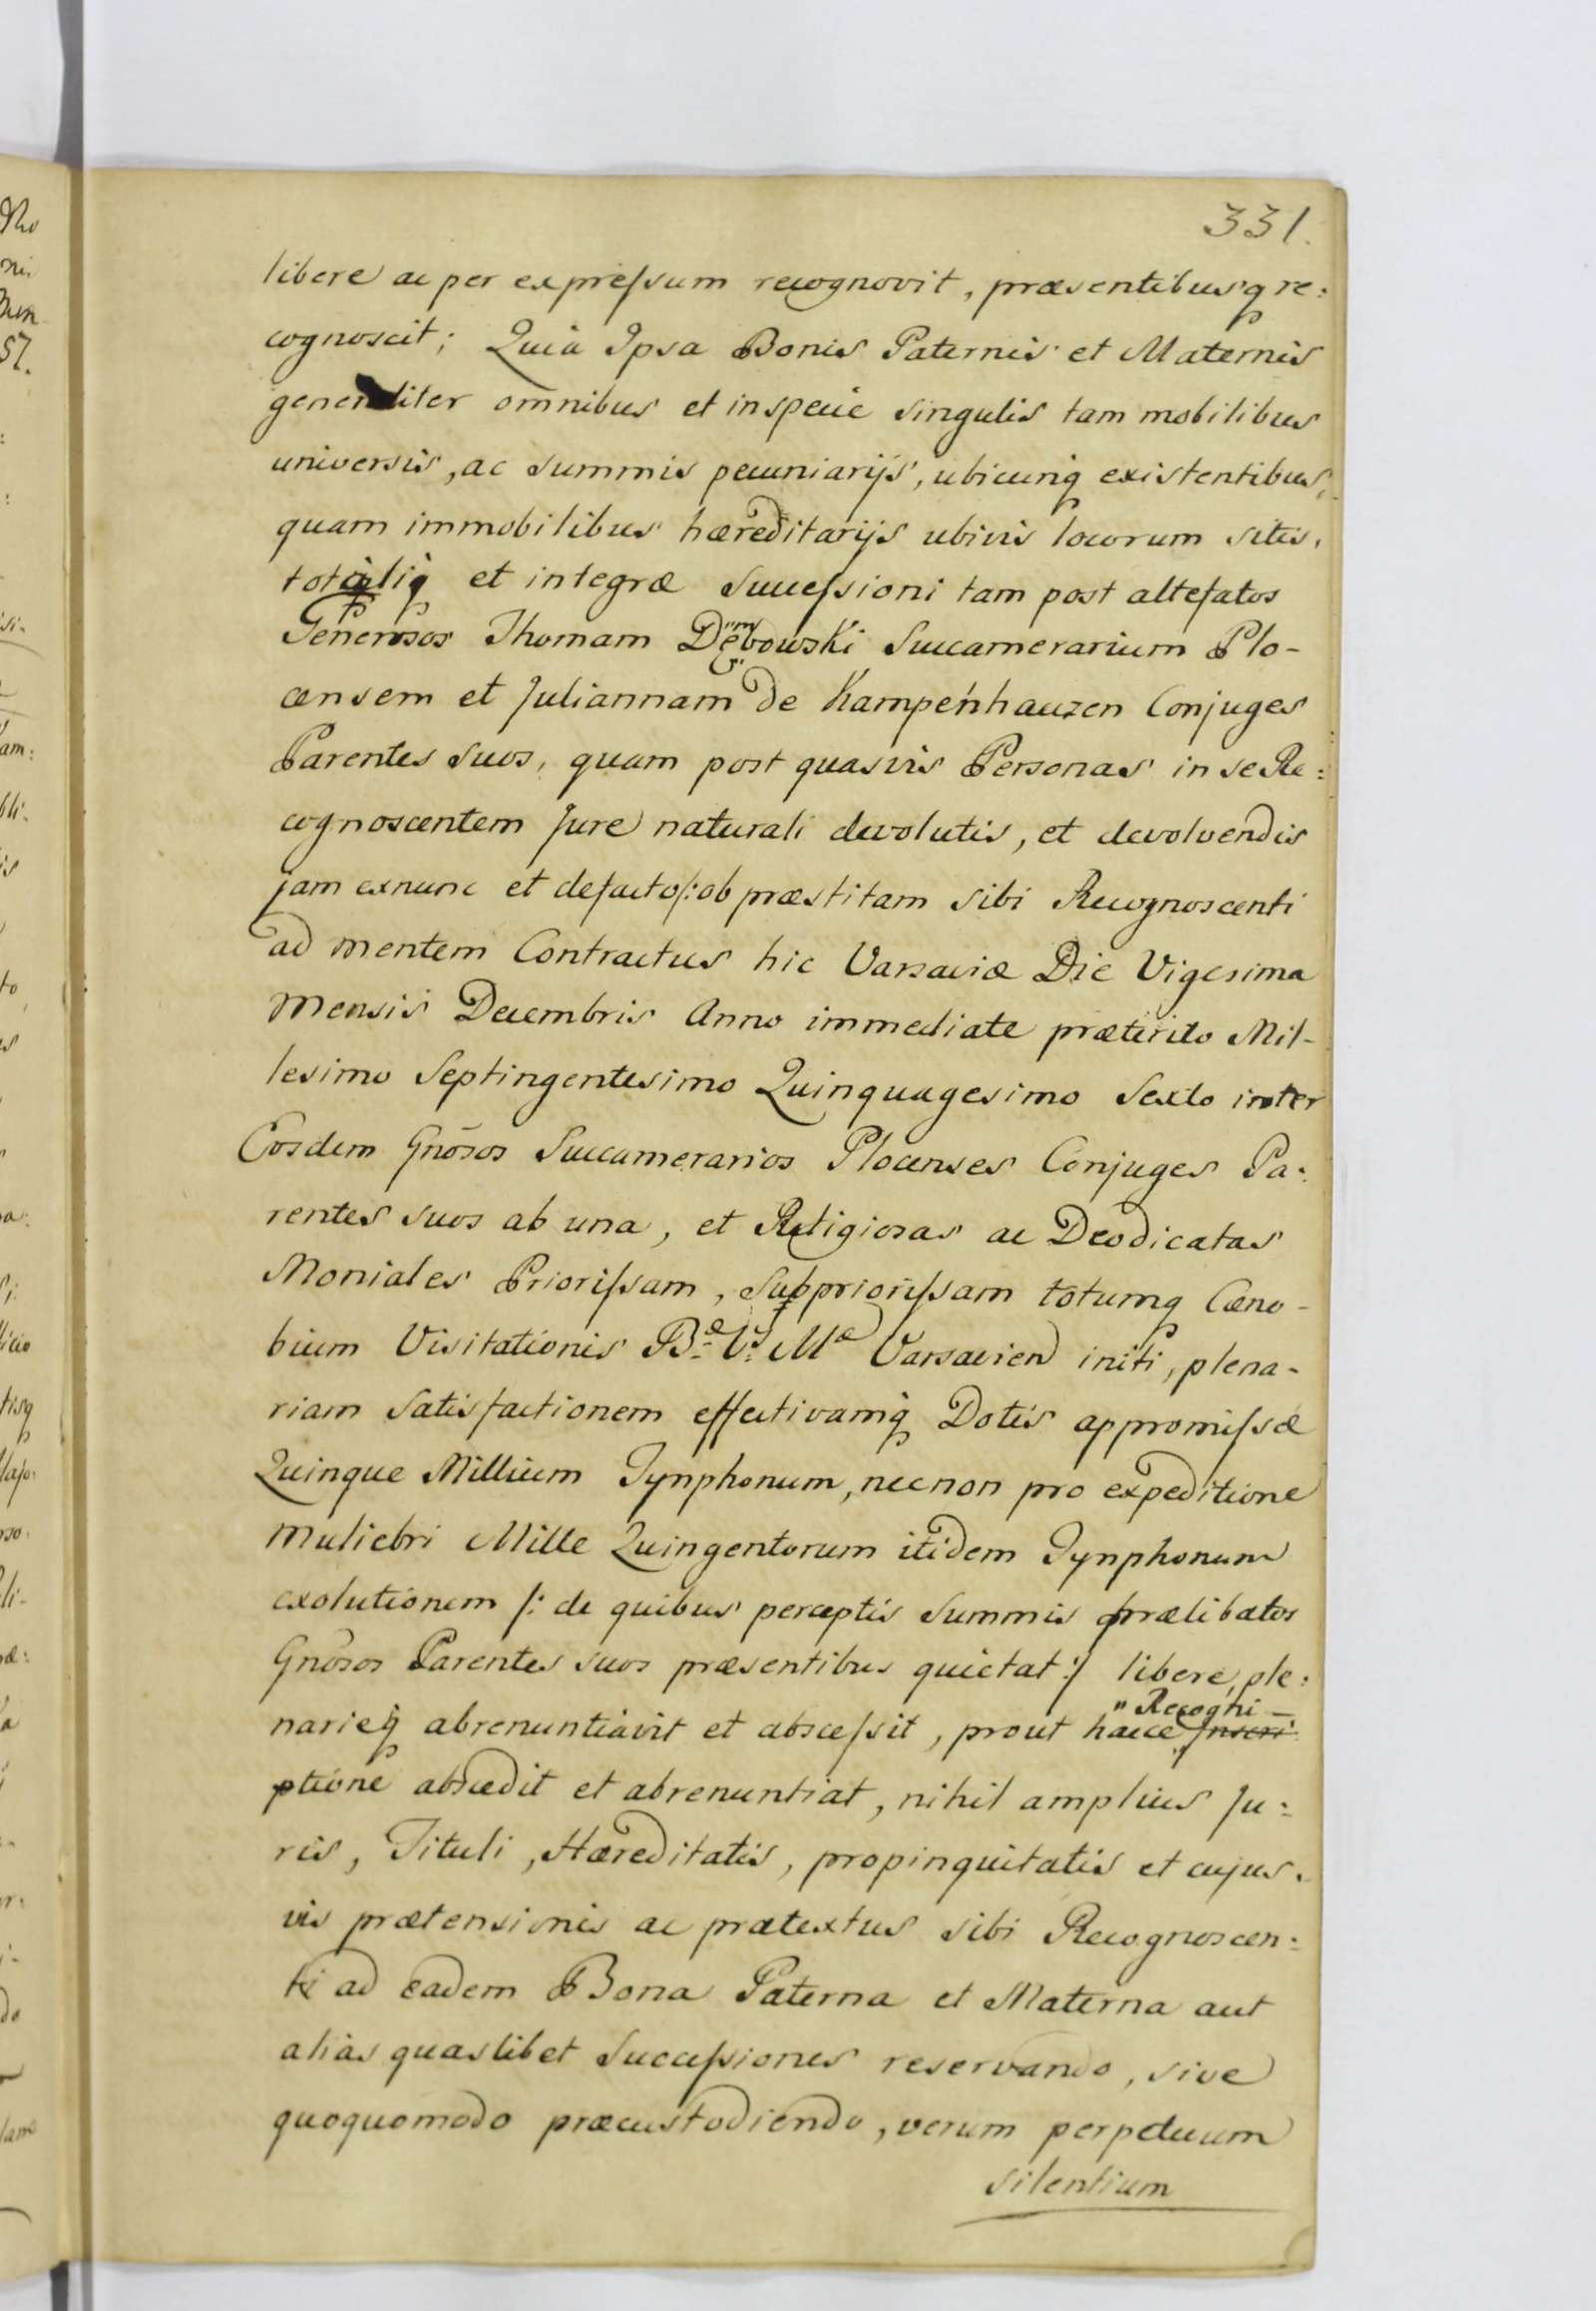 331.
libere ac per expreſsum recognovit, præsentibusq re:
cognoscit; Quia Ipsa Bonis Paternis et Maternis
generaliter omnibus et in specie singulis tam mobilibus
universis, ac summis pecuniarijs, ubicunq existentibus,
quam immobilibus hæreditarijs ubivis locorum sitis,
totaliq et integræ Succeſsioni tam post altefatos
Generosos Thomam Dębowski Succamerarium Plo-
censem et Juliannam de Kampenhauzen Conjuges
Parentes suos, quam post quasvis Personas in se Re:
cognoscentem Jure naturali devolutis, et devolvendis
jam exnunc et defacto /: ob præstitam sibi Recognoscenti
ad mentem Contractus hic Varsaviæ Die Vigesima
Mensis Decembris Anno immediate præterito Mil-
lesimo Septingentesimo Quinquagesimo Sexto inter
Eosdem Gnōsos Succamerarios Plocenses Conjuges Pa:
rentes suos ab una, et Religiosas ac Deodicatas
Moniales Prioriſsam, Subprioriſsam totumq Cæno-
bium Visitationis Bæ V: Mæ Varsavien initi, plena-
riam Satisfactionem effectivamq Dotis appromiſsæ
Quinque Millium Tynphonum, necnon pro expeditione
Muliebri Mille Quingentorum itidem Tynphonum
exolutionem /: de quibus perceptis Summis prælibatos
Gnōsos Parentes suos præsentibus quietat :/ libere, ple:
narieq abrenuntiavit et absceſsit, prout hacce Inscri
" Recogni -
ptione abscedit et abrenuntiat, nihil amplius Ju:
ris, Tituli, Hæreditatis, propinquitatis et cujus.
vis prætensionis ac prætextus sibi Recognoscen:
ti ad eadem Bona Paterna et Materna aut
alias quaslibet Succeſsiones reservando, sive
quoquomodo præcustodiendo, verum perpetuum
silentium